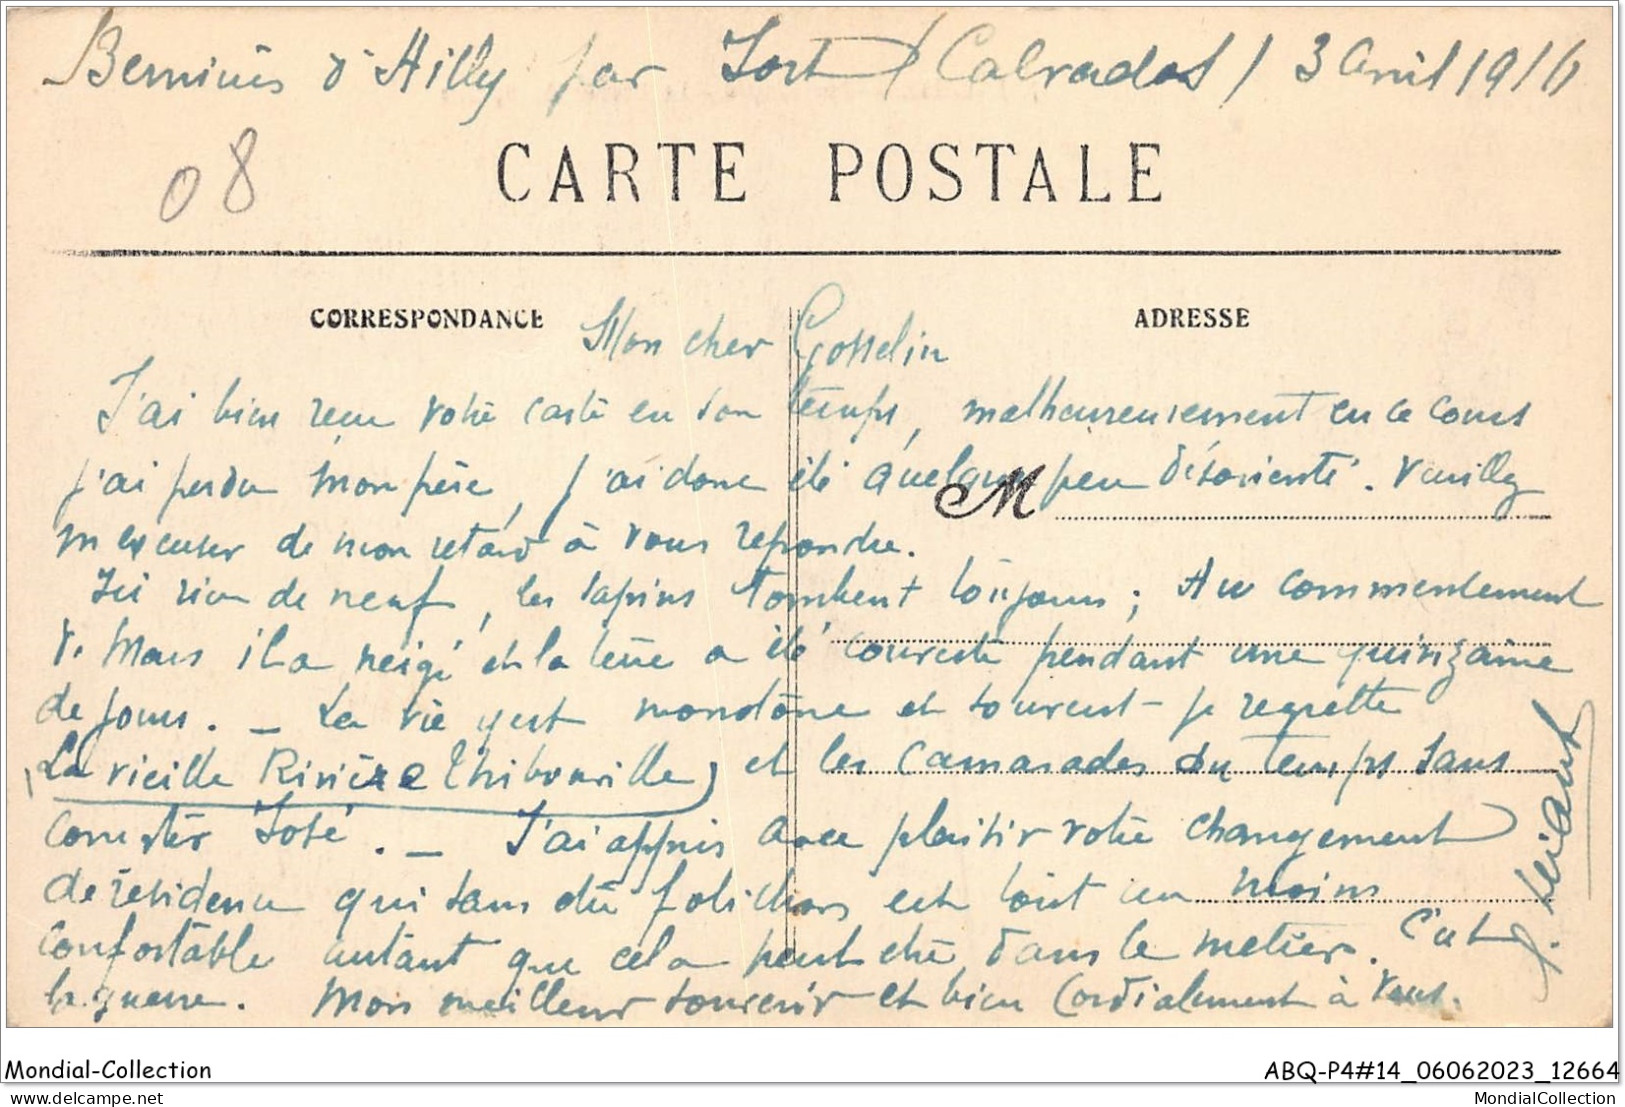 Bernières d'Ailly par Jort (Calvados) 3 Avril 1916
08
CARTE POSTALE
CORRESPONDANCE
ADRESSE
Mon cher Gosselin
J'ai bien reçu votre carte en son temps, malheureusement en ce cours
j'ai perdu mon père, j'ai donc été quelque peu désorienté. Veuillez
M
m'excuser de mon retard à vous répondre.
Ici rien de neuf, les sapins tombent toujours; Au commencement
de Mars il a neigé et la terre a été couverte pendant une quinzaine
de jours. _ La vie y est monotone et souvent je regrette
La vieille Rivière Thibouville et les camarades du temps sans
compter José. _ J'ai appris avec plaisir votre changement
de résidence qui sans être folichon est tout au moins
confortable autant que cela peut être dans le métier. C'est
la guerre. Mon meilleur souvenir et bien Cordialement à Vous.
Mondial-Collection
ABQ-P4#14_06062023_12664
delcampe.net
MondialCollection